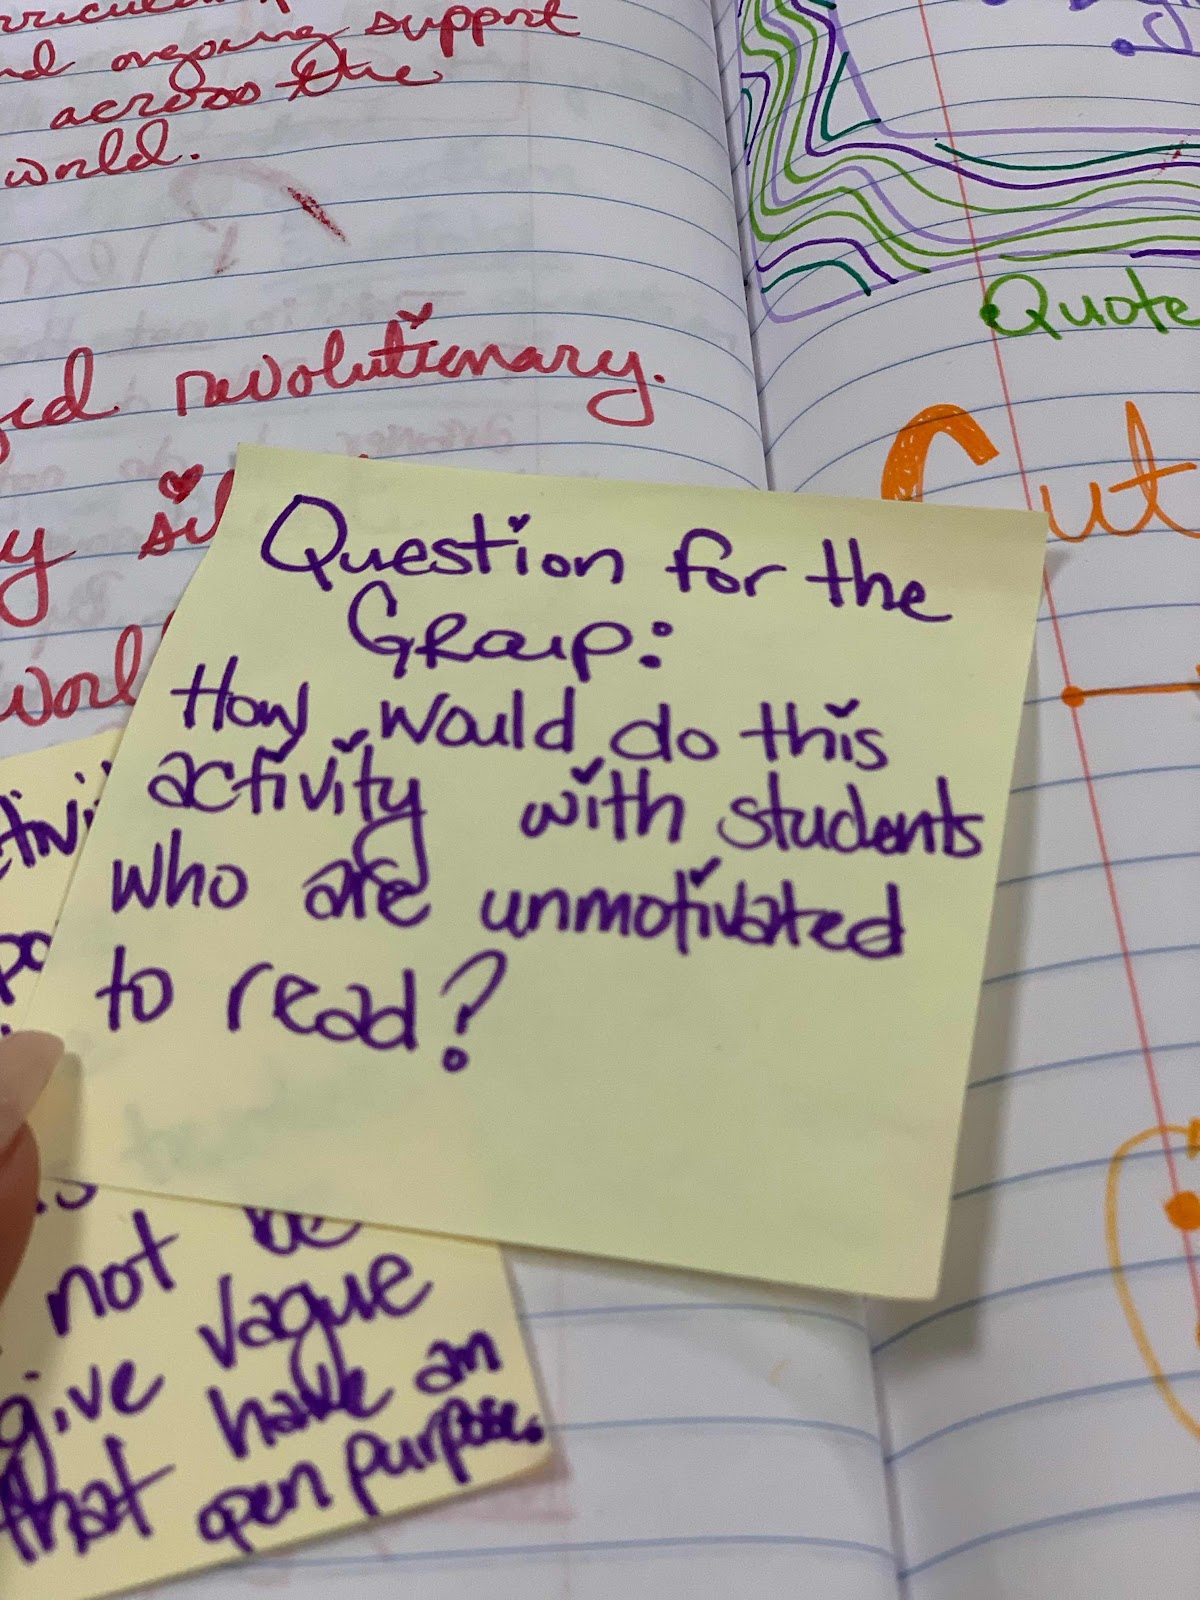 nd ongoing support
across the
world.
revolutionary.
Quote
Cut
Question for the
Group:
How would do this
activity with students
who are unmotivated
to read?
not be
give vague
that have an
open purpose.